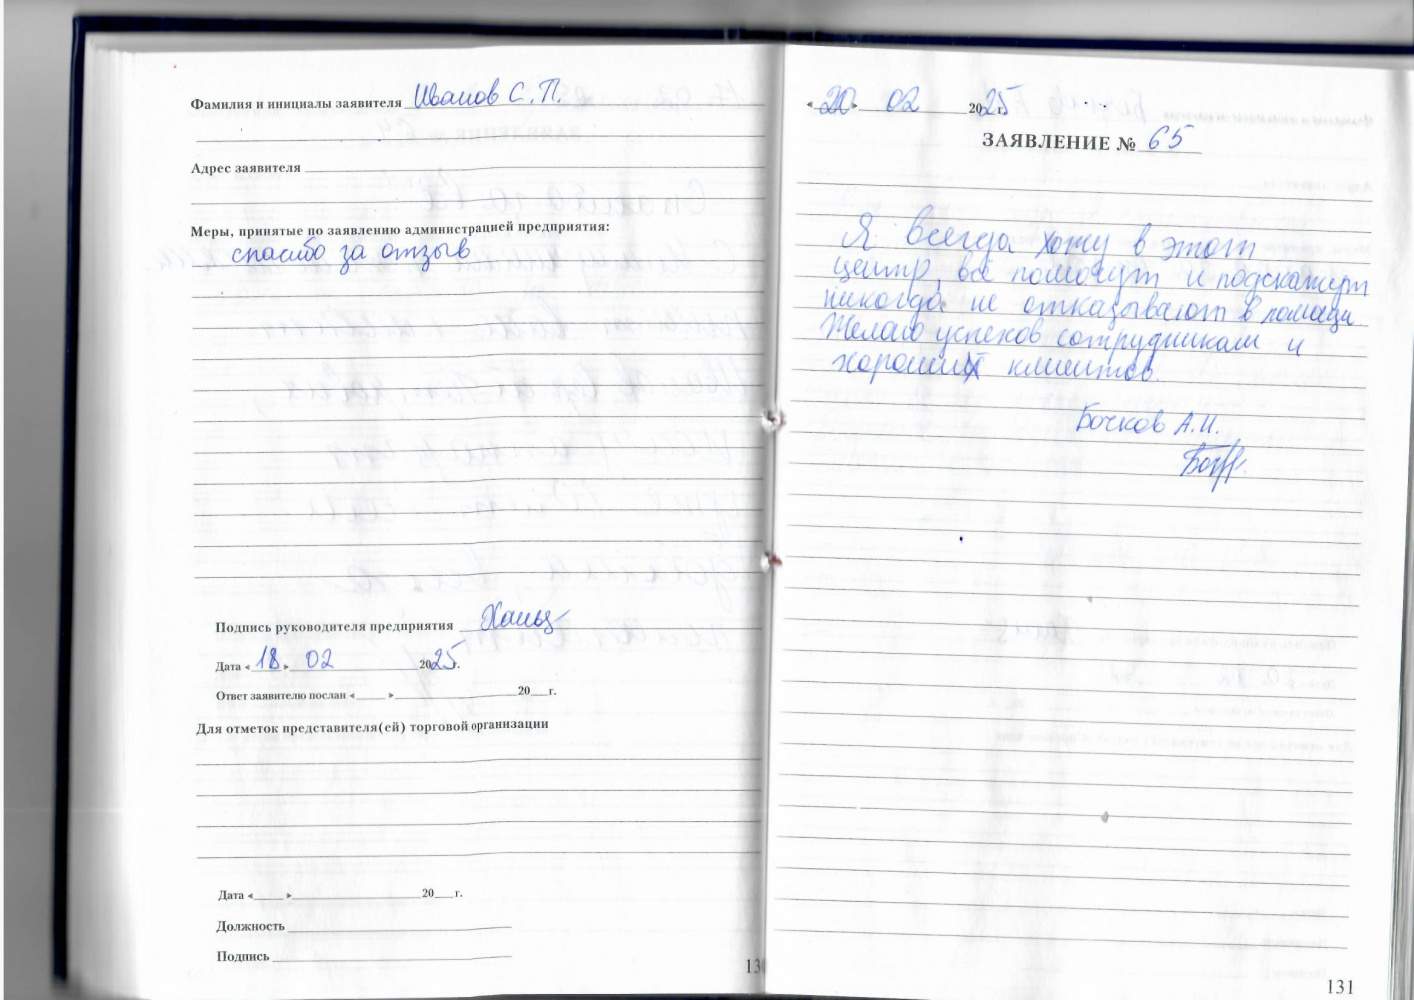 Фамилия и инициалы заявителя Иванов С.П.
Адрес заявителя
Меры, принятые по заявлению администрацией предприятия:
спасибо за отзыв
Подпись руководителя предприятия
Дата «18» 02 2025г.
Ответ заявителю послан « » 20 г.
Для отметок представителя(ей) торговой организации
Дата « » 20 г.
Должность
Подпись
13
«20» 02 2025г.
ЗАЯВЛЕНИЕ № 65
Я всегда хожу в этот
центр, все помогут и подскажут
никогда не отказывают в помощи
Желаю успехов сотрудникам и
хороших клиентов.
Бочков А.И.
131